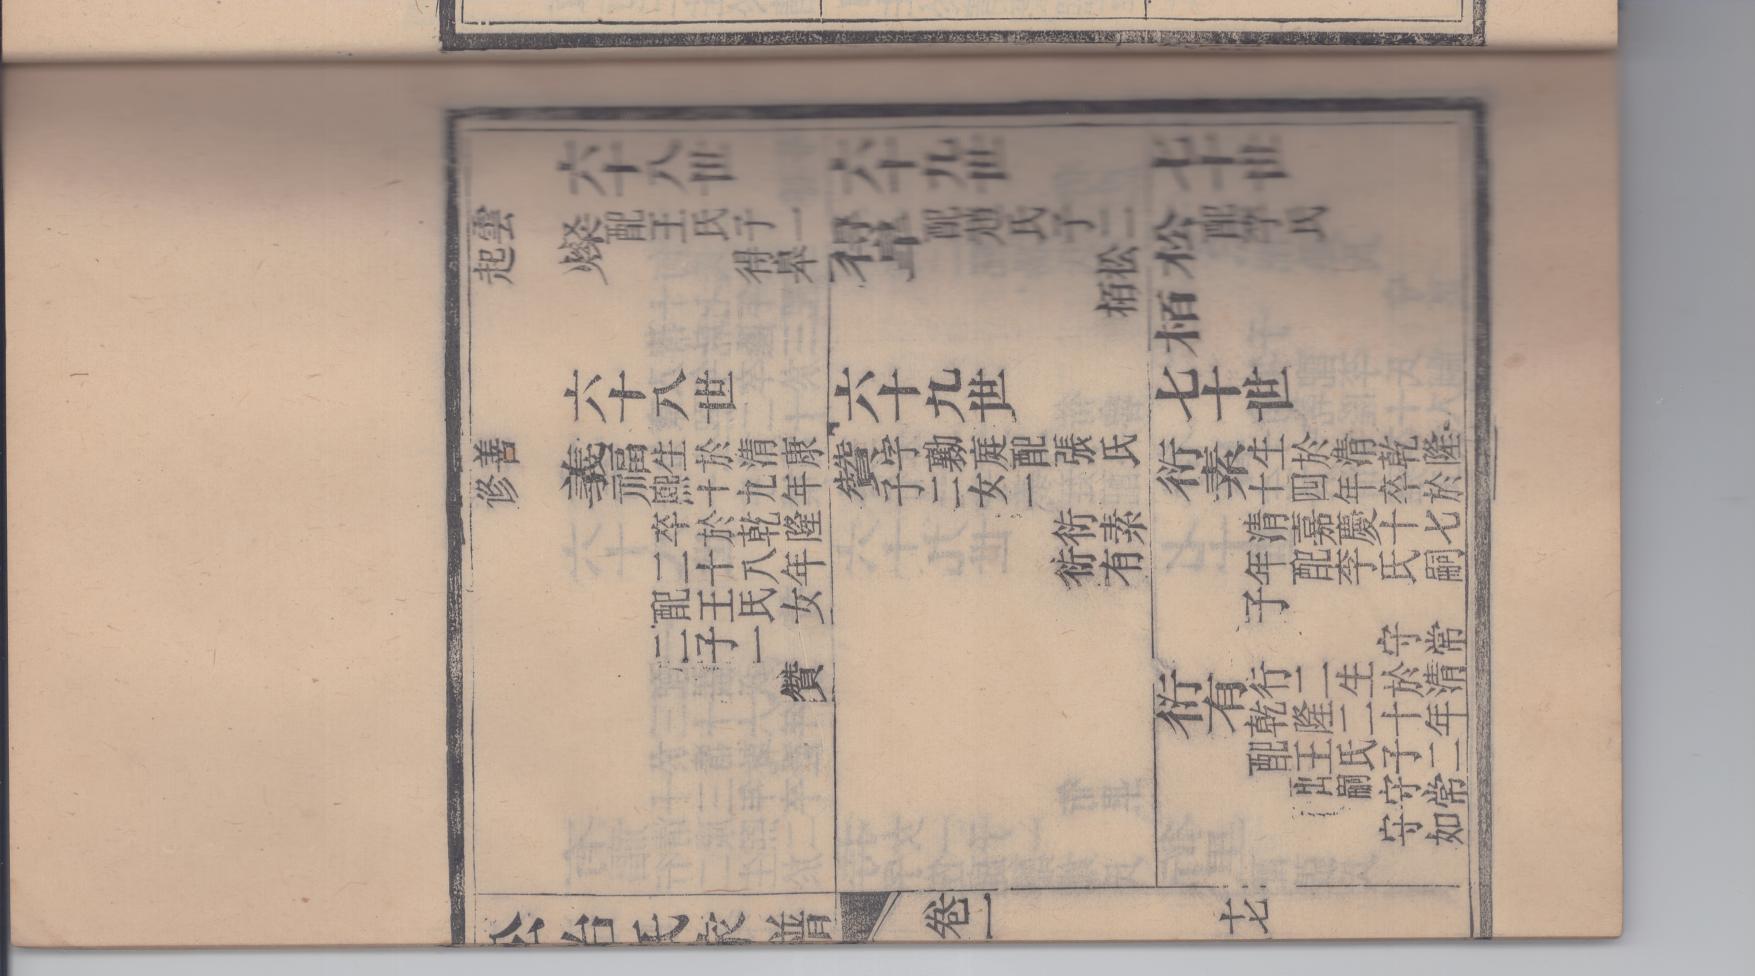 六十八世 六十九世 七十世
雲 燦 配王氏子一 得皋 配趙氏子二 松 配李氏
起 得皋 松
栢 栢
六十八世 六十九世 七十世
善 義福 生於清康 贊 字勷庭配張氏 衍素 生於清乾隆
修 熙十九年 子二女一 十四年卒於
卒於乾隆 衍素 清嘉慶十七
二十八年 衍有 年配李氏嗣
配王氏女 子
二子一 守常
贊 衍有 行二生於清
乾隆二十年
配王氏子二
出嗣守常
守如
公冶氏家譜 卷一 十七